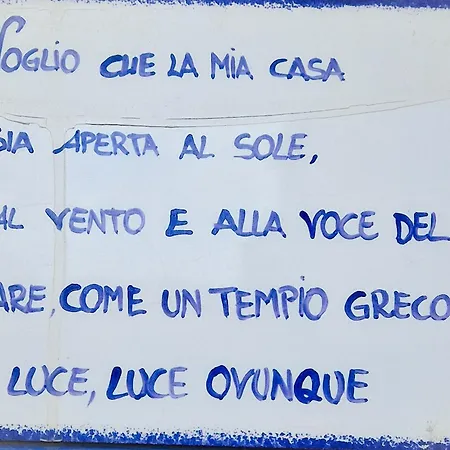 VOGLIO CHE LA MIA CASA
SIA APERTA AL SOLE,
AL VENTO E ALLA VOCE DEL
ARE, COME UN TEMPIO GRECO
LUCE, LUCE OVUNQUE